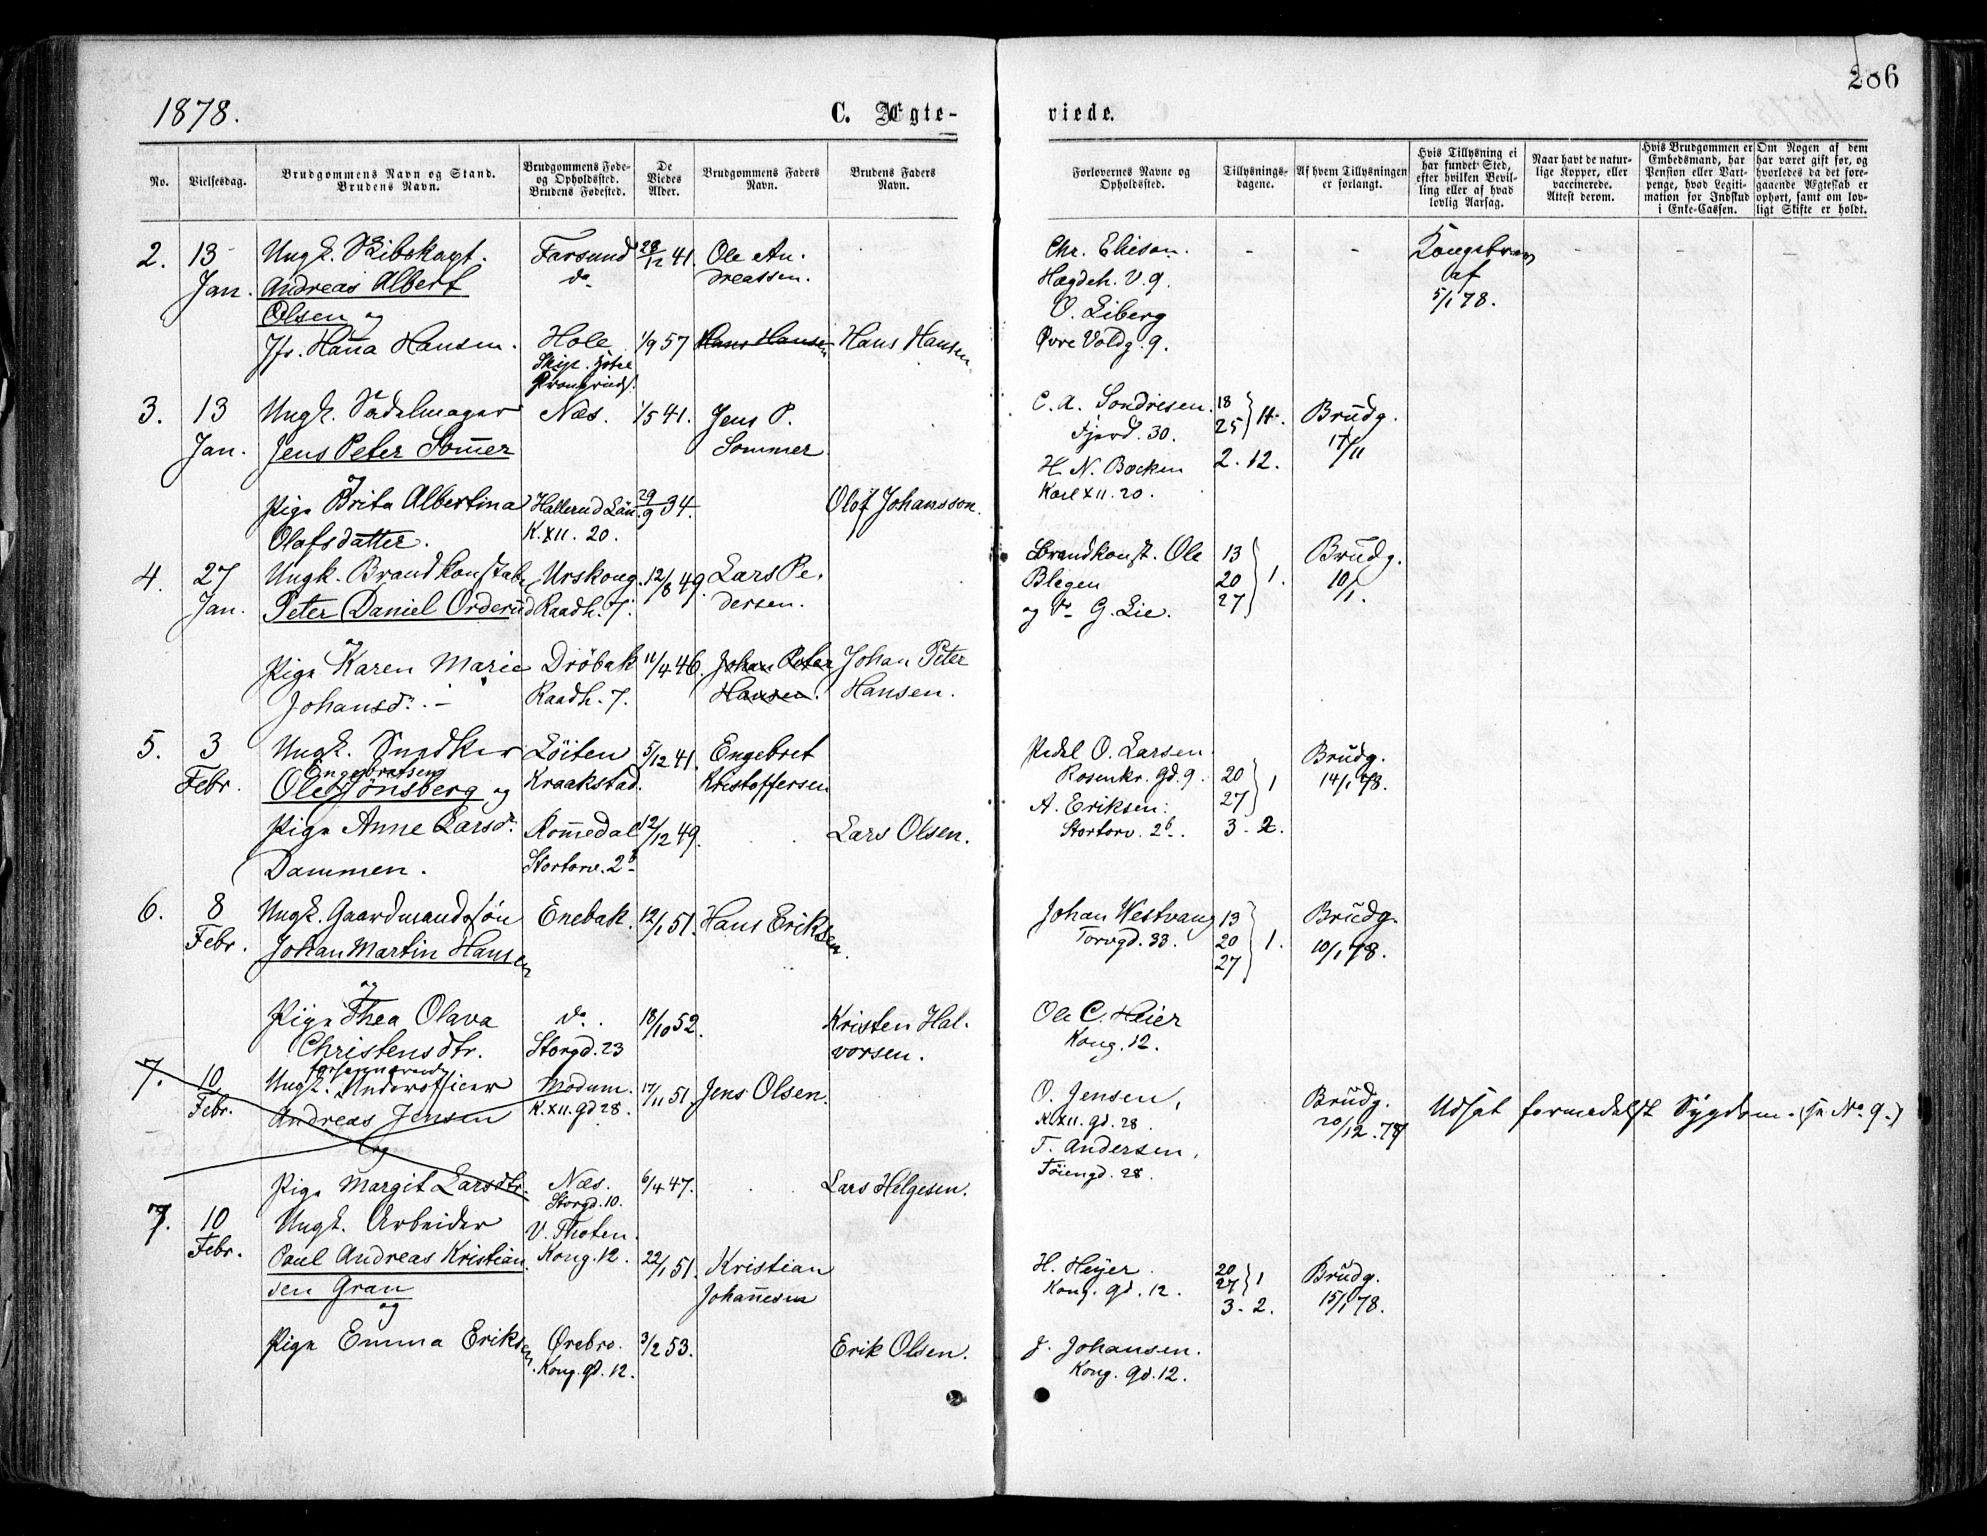 286
1878.
C. Ægte-
viede.
No.
Vielsesdag.
Brudgommens Navn og Stand.
Brudens Navn.
Brudgommens Føde-
og Opholdssted.
Brudens Fødested.
De
Viedes
Alder.
Brudgommens Faders
Navn.
Brudens Faders
Navn.
Forlovernes Navne og
Opholdssted.
Tillysnings-
dagene.
Af hvem Tillysningen
er forlangt.
Hvis Tillysning ei
har fundet Sted,
efter hvilken Bevil-
ling eller af hvad
lovlig Aarsag.
Naar havt de natur-
lige Kopper, eller
vaccinerede.
Attest derom.
Hvis Brudgommen er
Embedsmand, har
Pension eller Vart-
penge, hvad Legiti-
mation for Indskud
i Enke-Cassen.
Om Nogen af dem
har været gift før, og
hvorledes da det fore-
gaaende Ægteskab er
ophørt, samt om lov-
ligt Skifte er holdt.
2. 13 Ungk. Skibskapt. Farsund 28/12 41. Ole An- Chr. Elieson. - - Kongebrev - - -
Jan. Andreas Albert do dreassen. Hægdeh. V. 9. af
Olsen og O. Liberg 5/1 78.
Jfr. Hanna Hansen. Hole 1/9 57 Hans Hansen Hans Hansen Øvre Voldg. 9.
3. 13 Ungk. Sadelmager Næs. 1/5 41. Jens P. C. A. Sondresen. 18 25 } 11. Brudg.
Jan. Jens Peter Sommer Sommer Fjerd. 30. 17/11
og H. N. Backen 2. 12.
Karl XII. 20.
Pige Brita Albertina Hallerud Län. 29/9 34. Olof Johansson.
Olafsdatter. K. XII. 20.
4. 27 Ungk. Brandkonstabel Urskoug. 12/8 49. Lars Pe- Brandkonst. Ole 13 20 27 } 1. Brudg.
Jan. Peter Daniel Orderud Raadh. 7. dersen. Blegen 10/1.
og og do G. Lie.
Pige Karen Marie Drøbak 11/4 46. Johan Peter Johan Peter
Johansdr. Raadh. 7. Hansen. Hansen.
5. 3 Ungk. Snedker Løiten 5/12 41. Engebret Pedel O. Larsen Brudg.
Febr. Engebretsen Kraakstad. Kristoffersen Rosenkr. gd. 9. 20 27 } 1 14/1 78.
Ole Jønsberg og A. Eriksen.
Pige Anne Larsdr. Rommedal 12/12 49. Lars Olsen. Stortorv. 2b. 3. 2.
Dammen. Stortorv. 2b
6. 8 Ungk. Gaardmandssøn Enebak. 12/1 51. Hans Eriksen. Johan Westvang 13 20 27 } 1. Brudg.
Febr. Johan Martin Hansen Torvgd. 33. 10/1 78.
og
Pige Thea Olava do 18/10 52. Kristen Hal- Ole C. Heier
Christensdtr. Storgd. 23 vorsen. Kong. 12.
7. 10 Ungk. forhenværende Underofficer Modum. 17/11 51. Jens Olsen. O. Jensen, Brudg. Udsat formedelst Sygdom. (se No 9.)
Febr. Andreas Jensen K. XII. gd 28. K. XII. gd. 28. 20/12. 77
og T. Andersen,
Tøiengd. 28.
Pige Margit Larsdtr. Næs. 6/4 47. Lars Helgesen.
Storgd. 10.
7. 10 Ungk. Arbeider V. Thoten.
Febr. Paul Andreas Kristian- Kong. 12. 22/1 51. Kristian H. Heyer 20 27 } 1 Brudg.
sen Gran Johannesen Kong. gd. 12. 3. 2. 15/1 78.
og
Pige Emma Eriksen. Ørebro. 3/2 53. Erik Olsen. J. Johansen.
Kong. gd. 12. Kong. gd. 12.